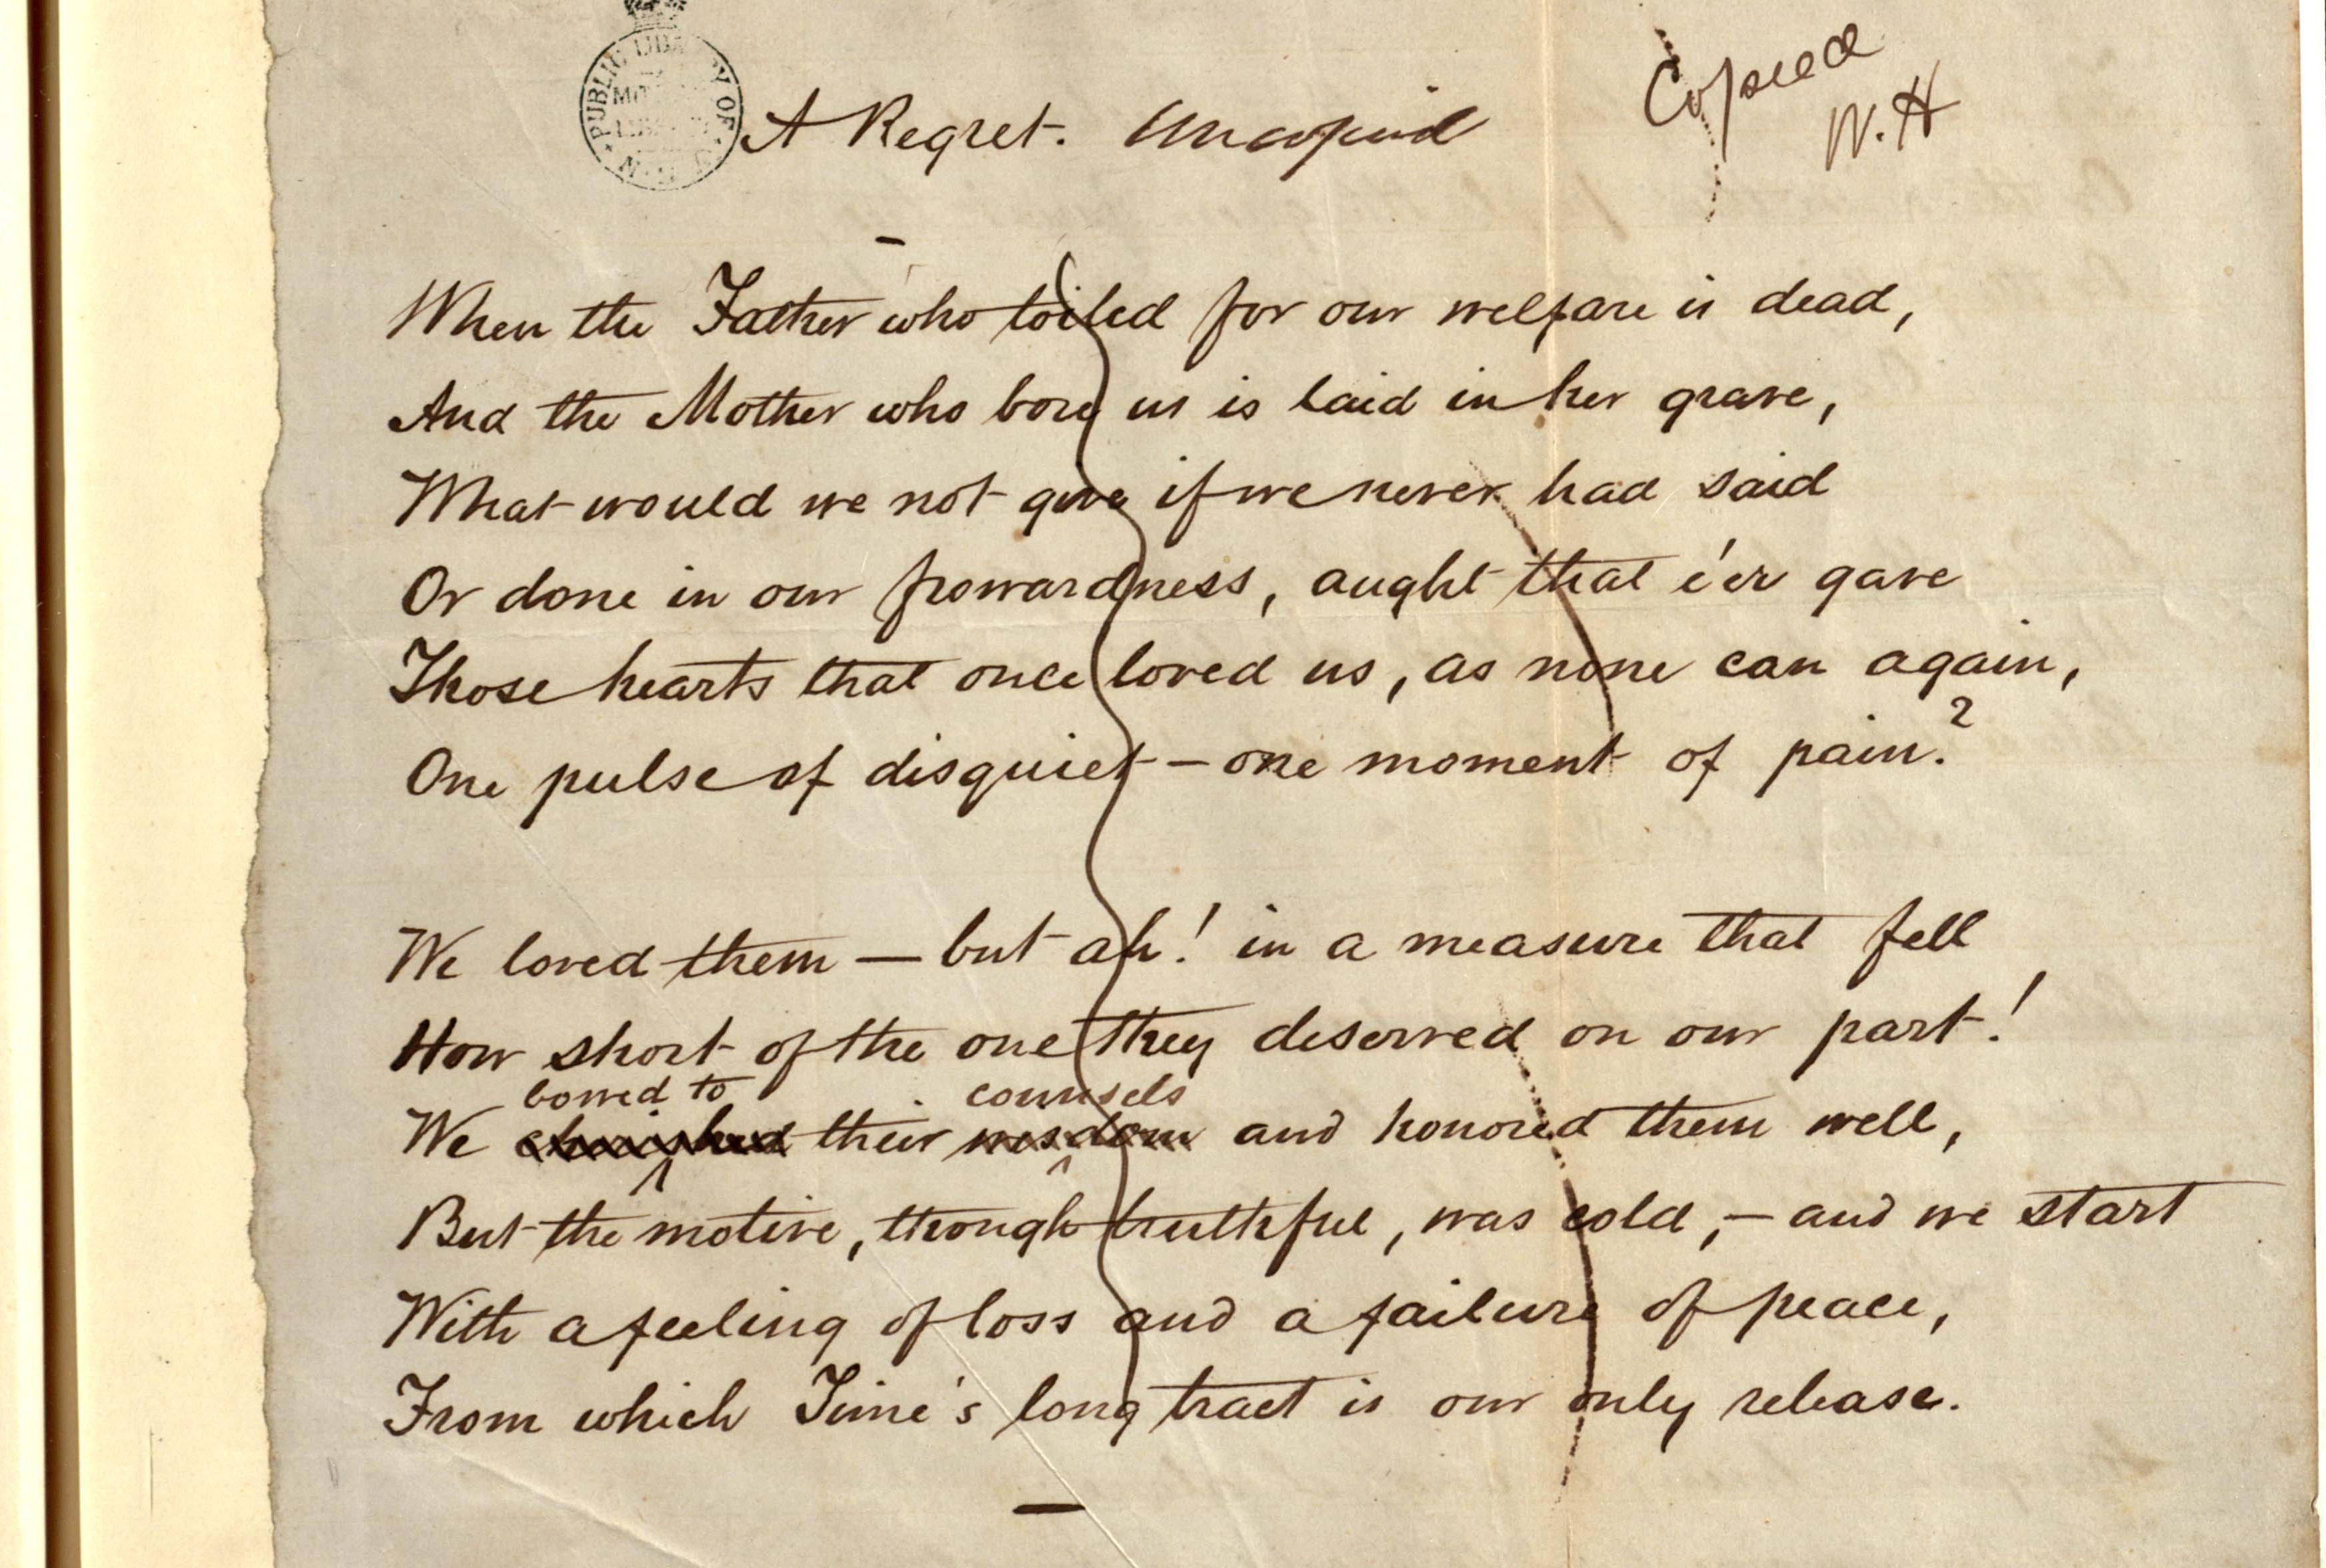 PUBLIC LIBRARY OF N.S.W.
A Regret. Uncopied
Copied
W. H
When the Father who toiled for our welfare is dead,
And the Mother who bore us is laid in her grave,
What would we not give if we never had said
Or done in our frowardness, aught that e'er gave
Those hearts that once loved us, as none can again,
One pulse of disquiet — one moment of pain?
We loved them — but ah! in a measure that fell
How short of the one they deserved on our part!
bowed to counsels
We cherished their wisdom and honored them well,
But the motive, though truthful, was cold, — and we start
With a feeling of loss and a failure of peace,
From which Time's long tract is our only release.